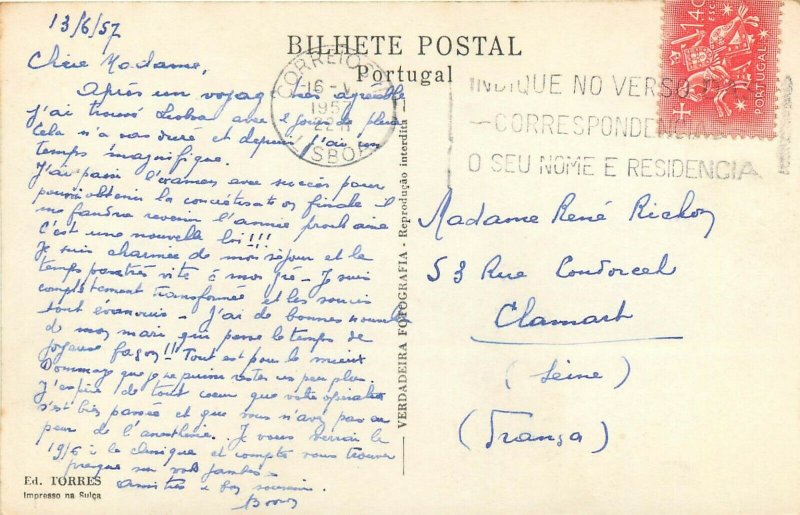 13/6/57
Chère Madame,
Après un voyage très agréable
j'ai trouvé Lisboa avec 2 jours de pluie
Cela n'a pas duré et depuis j'ai un
temps magnifique.
J'ai passé l'examen avec succès pour
pouvoir obtenir la finale il
me faudra revenir l'année prochaine
C'est une nouvelle loi!!!
Je suis charmée de mon séjour et le
temps passe très vite à mon gré - Je suis
complètement transformée et les soucis
sont évanouis - J'ai de bonnes nouvelles
de mon mari qui passe le temps de
joyeuse façon!! Tout est pour le mieux
Dommage que je ne puisse rester un peu plus.
J'espère de tout coeur que votre opération
s'est bien passée et que vous n'avez pas eu
peur de l'anesthésie. Je vous verrai le
19/6 à la clinique et compte vous trouver
presque sur vos jambes -
Amitiés & bon souvenir.
BILHETE POSTAL
Portugal
CORREIOS
16-V
1957
22H
LISBOA
INDIQUE NO VERSO
CORRESPONDENCIAS
O SEU NOME E RESIDENCIA
PORTUGAL
VERDADEIRA FOTOGRAFIA - Reprodução interdita
Madame René Richon
53 Rue Condorcet
Clamart
(Seine)
(França)
Ed. TORRES
Impresso na Suíça